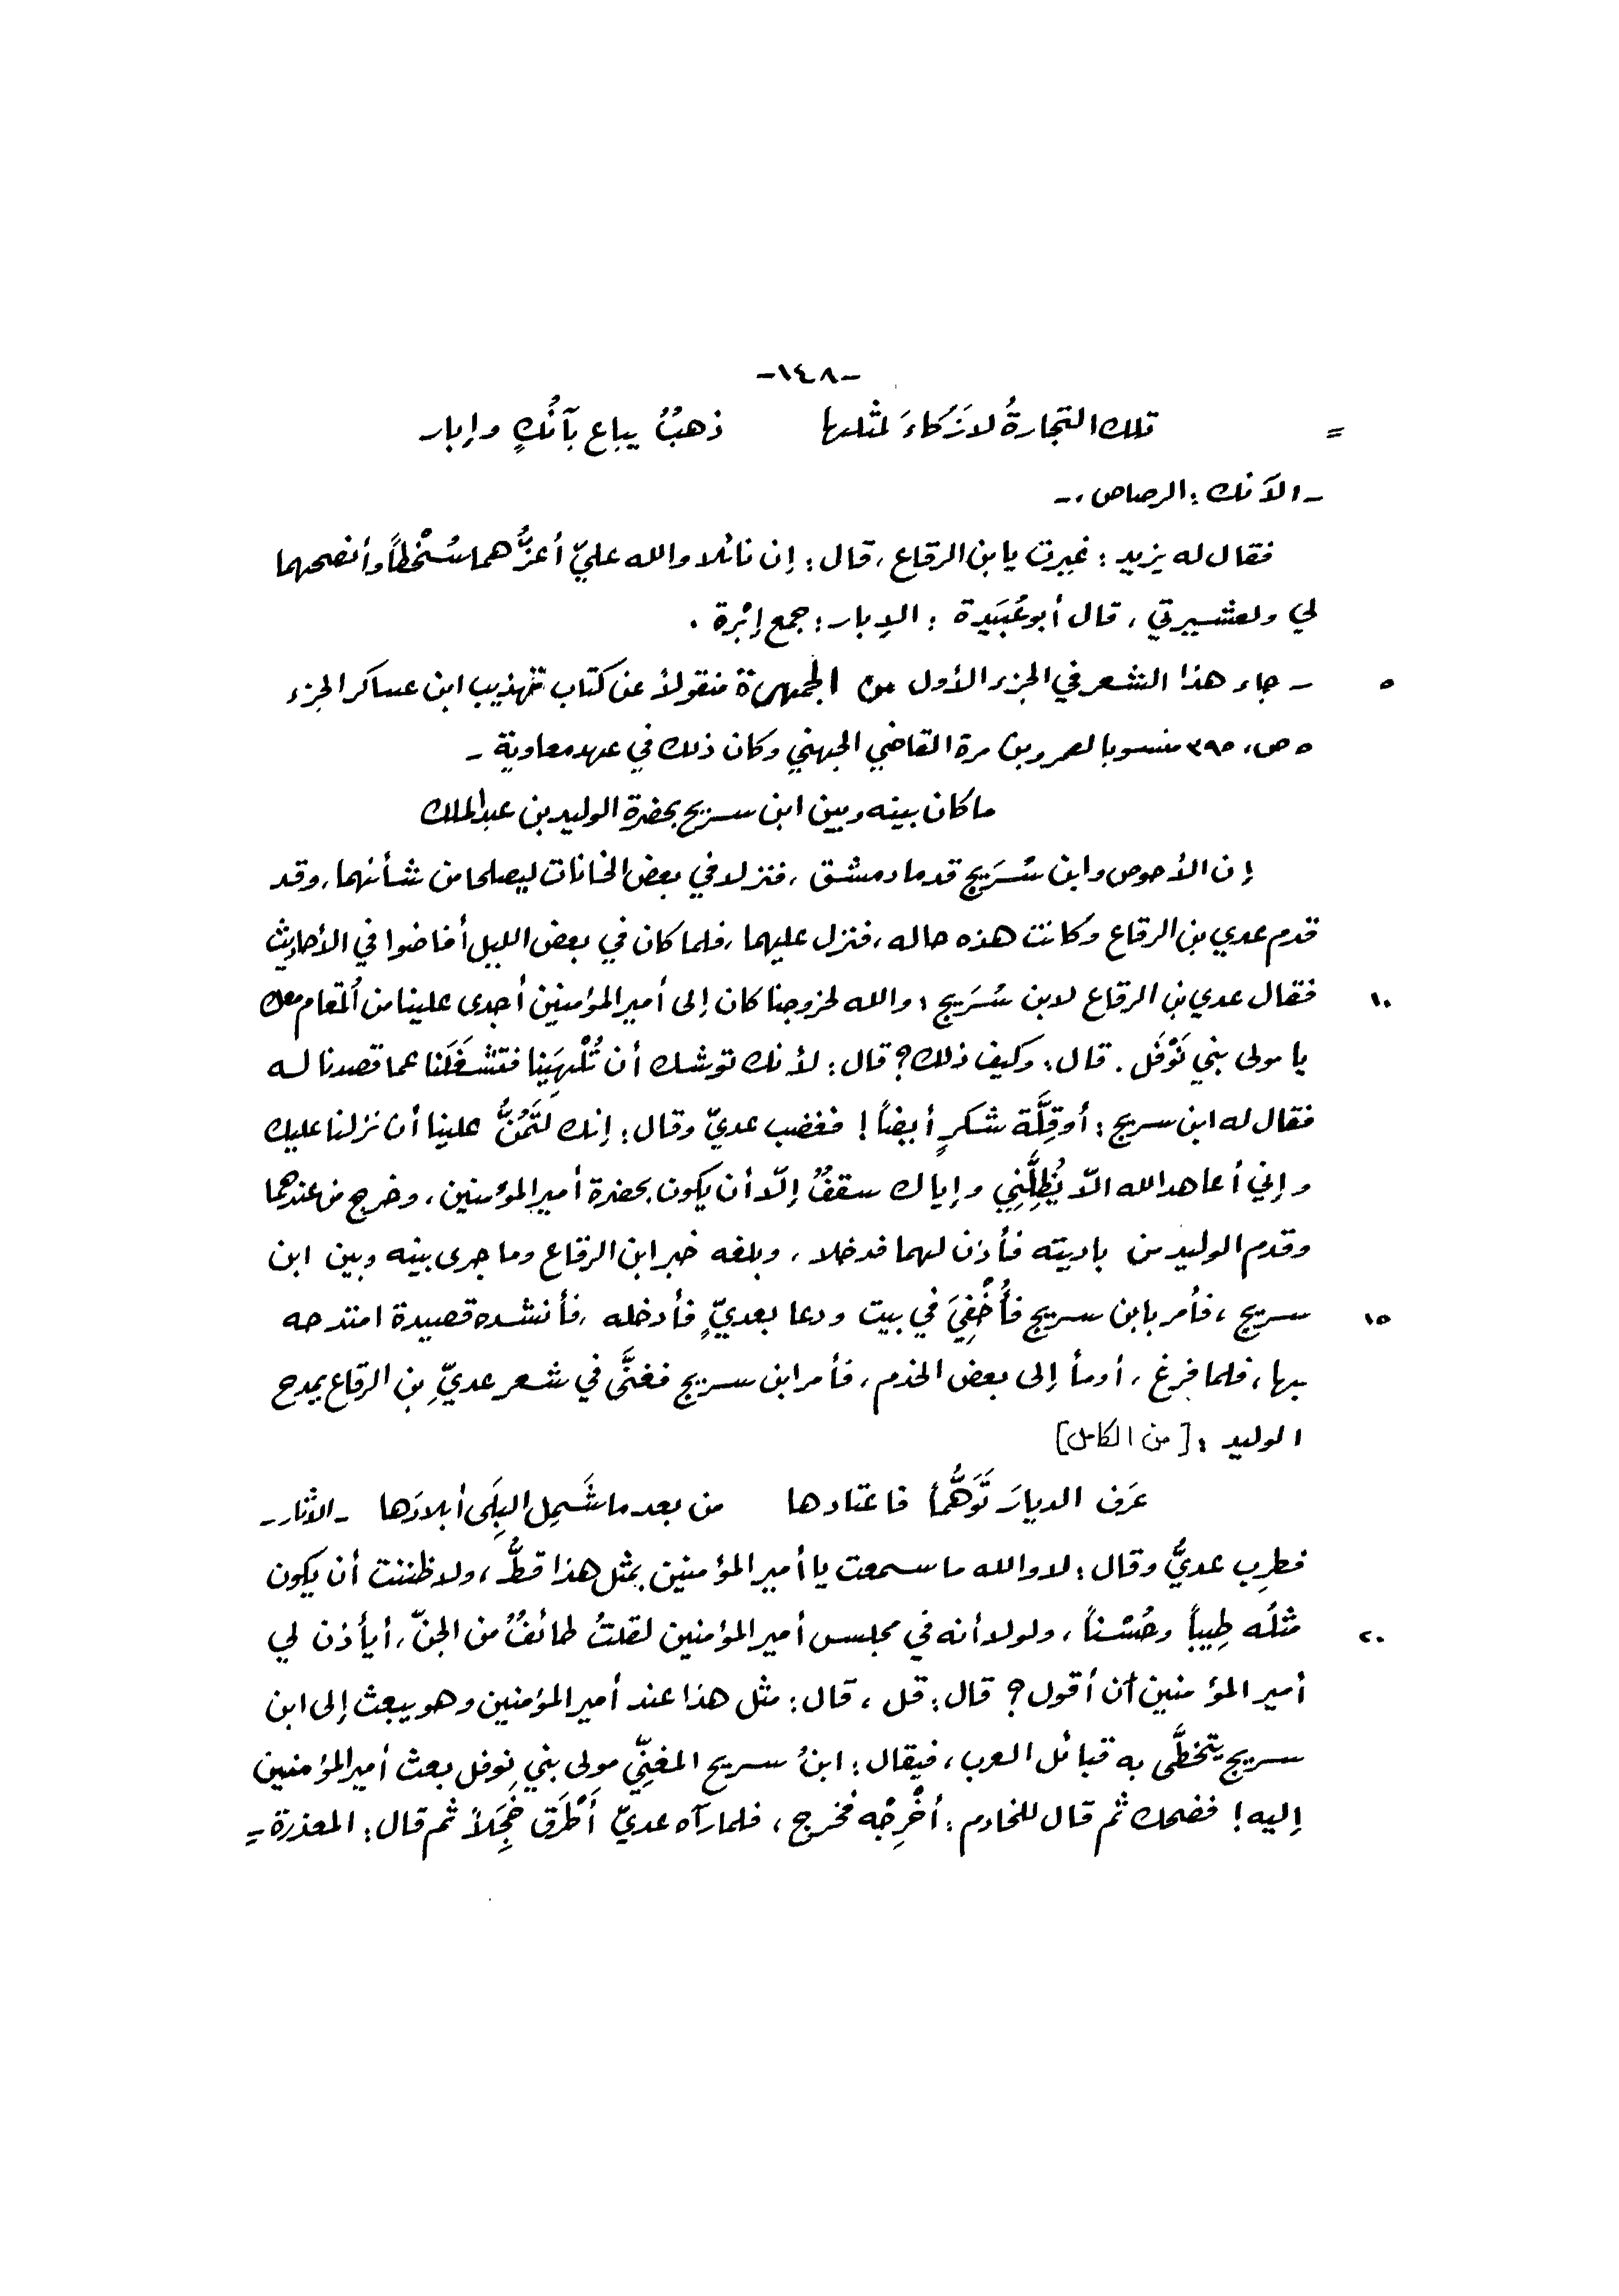 -١٤٨-
= تلك التجارةُ لا زَكاءَ لمثلها ذهبٌ يباع بآنُكٍ وإبار
- الآنك: الرصاص. -
فقال له يزيد: غيرت يا بن الرقاع، قال: إن ناتلا والله عليّ أعزُّهما سُخْطاً وأنصحهما
لي ولعشيرتي، قال أبو عُبَيدة: الإبار: جمع إبْرة.
٥ - جاء هذا الشعر في الجزء الأول من الجمهرة منقولاً عن كتاب تهذيب ابن عساكر الجزء
٥ ص، ٣٩٥ منسوبا لعمرو بن مرة القاضي الجهني وكان ذلك في عهد معاوية -
ما كان بينه وبين ابن سريج بحضرة الوليد بن عبد الملك
إن الأحوص وابن سُرَيج قدما دمشق، فنزلا في بعض الخانات ليصلحا من شأنهما، وقد
قدم عدي بن الرقاع وكانت هذه حاله، فنزل عليهما، فلما كان في بعض الليل أفاضوا في الأحاديث
١٠ فقال عدي بن الرقاع لابن سُرَيج: والله لخروجنا كان إلى أمير المؤمنين أجدى علينا من المُقام معك
يا مولى بني نَوْفَل. قال: وكيف ذلك؟ قال: لأنك توشك أن تُلْهِيَنا فتشغَلَنا عما قصدنا له
فقال له ابن سريج: أو قِلَّة شكرٍ أيضاً! فغضب عديّ وقال: إنك لتَمُنُّ علينا أن نزلنا عليك
وإني أعاهد الله الّا يُظِلَّنِي وإياك سقفٌ إلّا أن يكون بحضرة أمير المؤمنين، وخرج من عندهما
وقدم الوليد من باديته فأذن لهما فدخلا، وبلغه خبر ابن الرقاع وما جرى بينه وبين ابن
١٥ سريج، فأمر بابن سريج فأُخْفِيَ في بيت ودعا بعديّ فأدخله، فأنشده قصيدة امتدحه
بها، فلما فرغ، أومأ إلى بعض الخدم، فأمر ابن سريج فغنَّى في شعر عديِّ بن الرقاع يمدح
الوليد: [من الكامل]
عَرَف الديارَ تَوَهُّماً فاعتادها من بعد ما شَمِل البِلَى أبلادَها - الآثار -
فطرِب عديٌّ وقال: لا والله ما سمعت يا أمير المؤمنين بمثل هذا قطُّ، ولا ظننت أن يكون
٢٠ مثلُه طِيباً وحُسْناً، ولولا أنه في مجلس أمير المؤمنين لقلتُ طائفٌ من الجنّ، أيأذن لي
أمير المؤمنين أن أقول؟ قال: قل، قال: مثل هذا عند أمير المؤمنين وهو يبعث إلى ابن
سريج يتخطَّى به قبائل العرب، فيقال: ابنُ سريج المغنِّي مولى بني نوفل بعث أمير المؤمنين
إليه! فضحك ثم قال للخادم: أخْرِجْه فخرج، فلما رآه عديّ أَطْرَق خَجَلاً ثم قال: المعذرة =